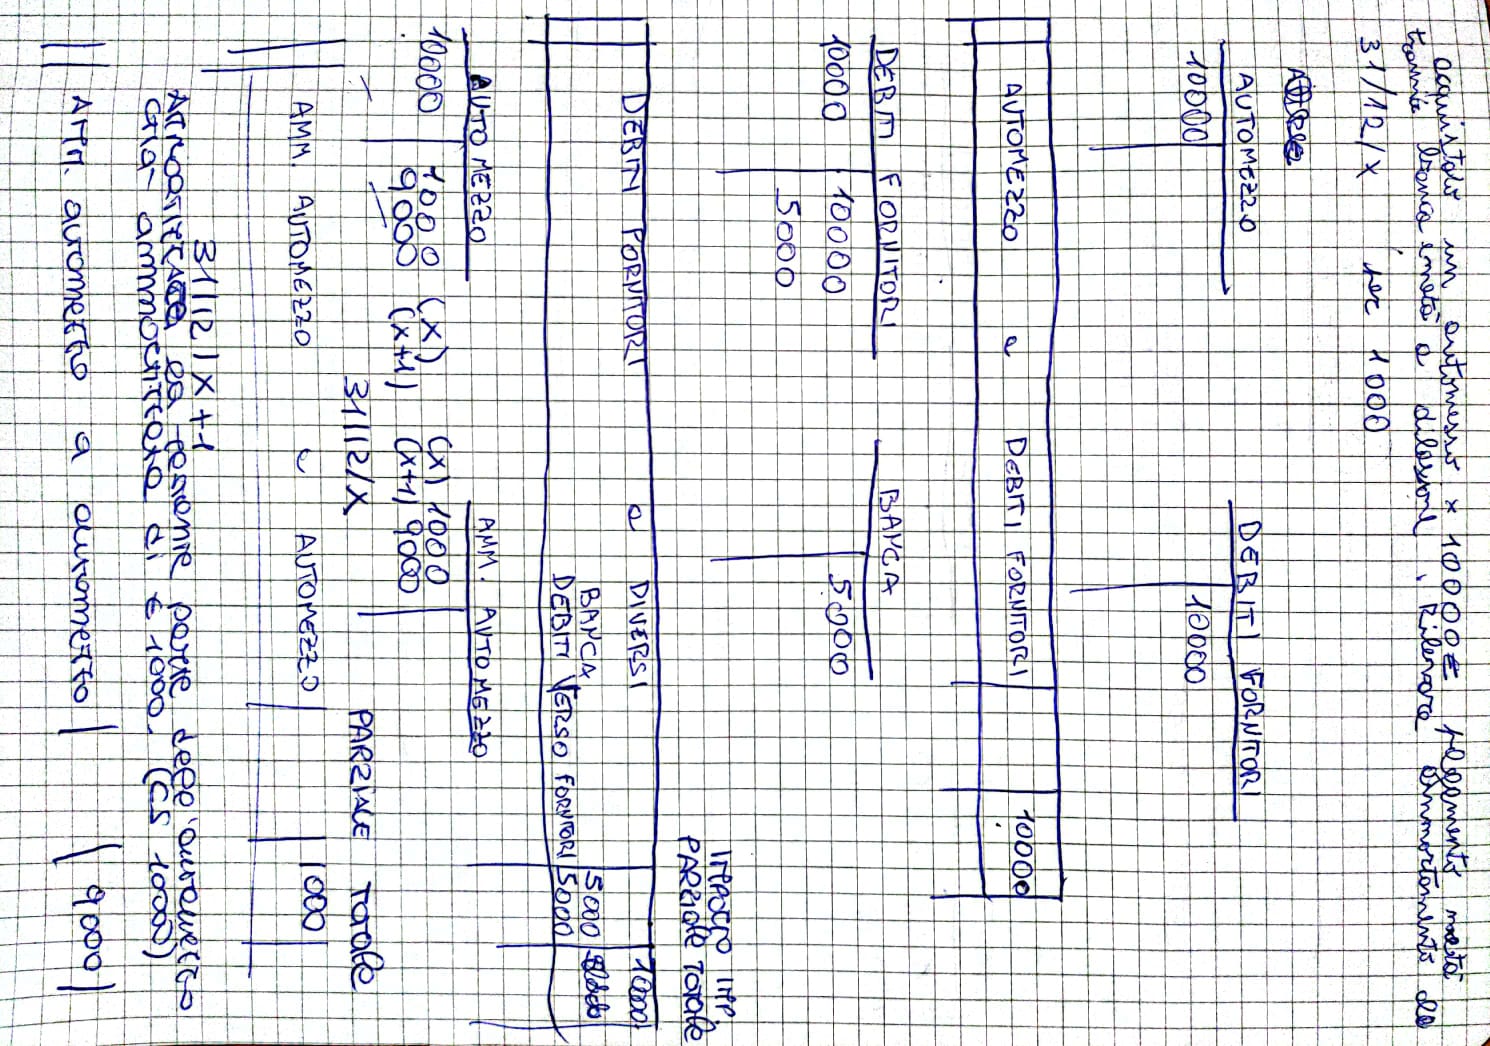 acquistato un automezzo x 10000€ pagamento metà
tramite banca metà a dilazione, Rilevare ammortamento al
31/12/X per 1000
AUTOMEZZO DEBITI FORNITORI
10000 10000
AUTOMEZZO a DEBITI FORNITORI 10000
DEBITI FORNITORI BANCA
10000 10000 5000
5000
IMPORTO IMP
PARZIALE TOTALE
DEBITI FORNITORI a DIVERSI 10000
BANCA 5000
DEBITI VERSO FORNITORI 5000
AUTOMEZZO AMM. AUTOMEZZO
10000 1000 (X) (X) 1000
9000 (X+1) (X+1) 9000
31/12/X PARZIALE TOTALE
AMM AUTOMEZZO a AUTOMEZZO 1000
31/12/X+1
la restante parte dell'automezzo
già ammortizzato di € 1000. (CS 1000)
AMM. automezzo a automezzo 9000